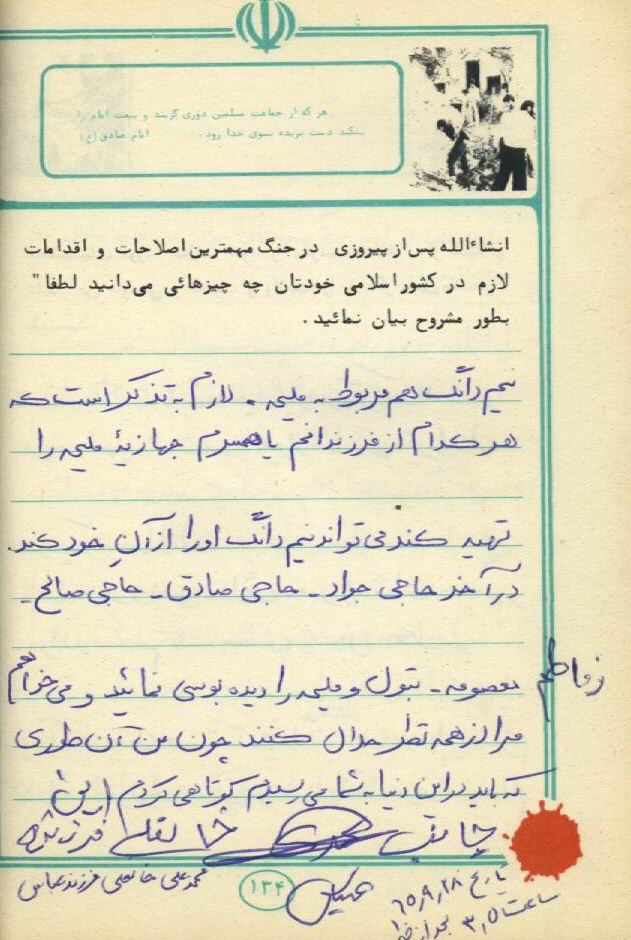 هر که از جماعت مسلمین دوری گزیند و بیعت امام را
بشکند دست بریده بسوی خدا رود. امام صادق (ع)
انشاءالله پس از پیروزی در جنگ مهمترین اصلاحات و اقدامات
لازم در کشور اسلامی خودتان چه چیزهائی می‌دانید لطفا"
بطور مشروح بیان نمائید.
نیم دانگ هم مربوط به ملیحه. لازم به تذکر است که
هر کدام از فرزندانم یا همسرم جهازیهٔ ملیحه را
تهیه کند می تواند نیم دانگ او را از آنِ خود کند.
در آخر حاجی جواد - حاجی صادق - حاجی صالح -
معصومه - بتول و ملیحه را دیده بوسی نمائید و می خواهم
فاطمه
مرا از همه نظر حلال کنند چون من آن طوری
که باید در این دنیا به شما می رسیدم کوتاهی کردم
فرزند
محمد علی فرزند عباس
۱۳۴
تاریخ ۶۵,۹,۲۸
ساعت ۳,۵ بعد از